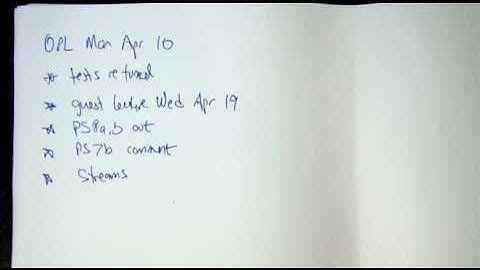 OPL Mon Apr 10
* tests returned
* guest lecture Wed Apr 19
* PS8a,b out
* PS7b comment
* Streams